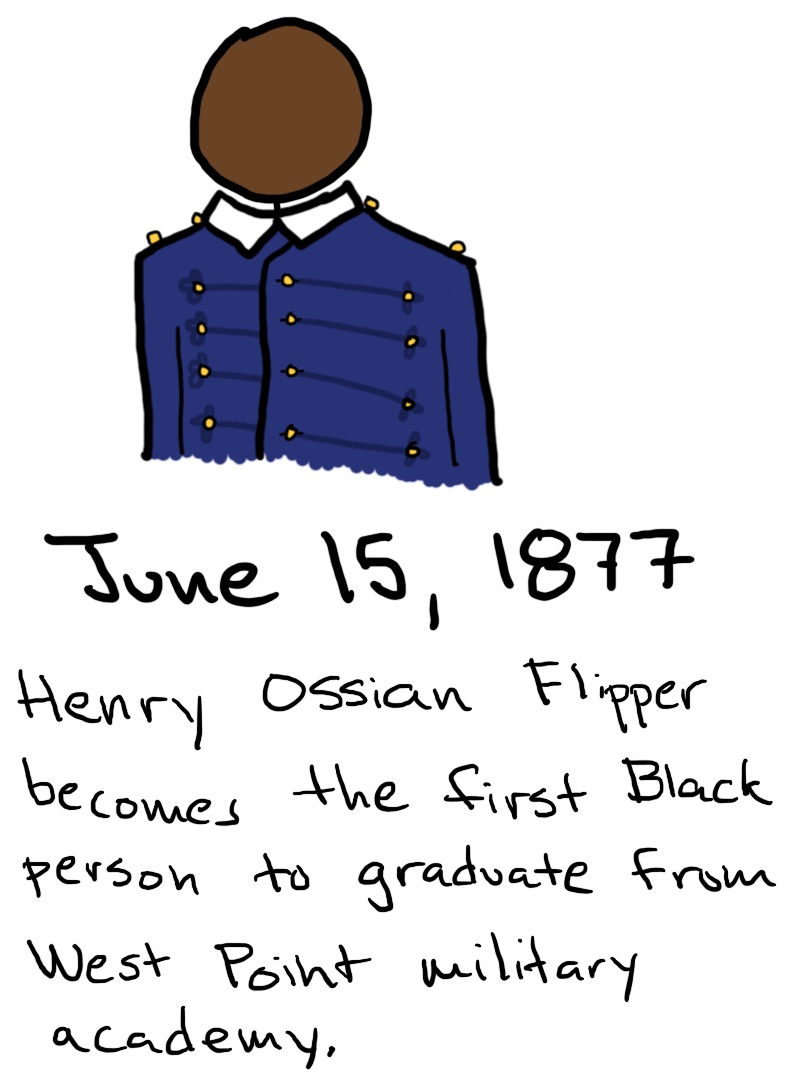 June 15, 1877
Henry Ossian Flipper
becomes the first Black
person to graduate from
West Point military
academy.